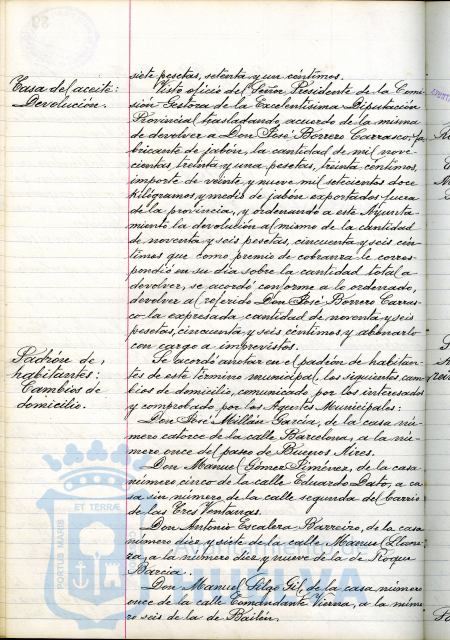 siete pesetas, setenta y un céntimos.
Tasa del aceite:
Devolución.
Visto oficio del Señor Presidente de la Comi-
sión Gestora de la Excelentísima Diputación
Provincial trasladando acuerdo de la misma
de devolver a Don José Borrero Carrasco, fa-
bricante de jabón, la cantidad de mil nove-
cientas treinta y una pesetas, treinta céntimos,
importe de veinte y nueve mil setecientos doce
kilógramos y medio de jabón exportados fuera
de la provincia, y ordenando a este Ayunta-
miento la devolución al mismo de la cantidad
de noventa y seis pesetas, cincuenta y seis cén-
timos que como premio de cobranza le corres-
pondió en su día sobre la cantidad total a
devolver, se acordó conforme a lo ordenado,
devolver al referido Don José Borrero Carras-
co la expresada cantidad de noventa y seis
pesetas, cincuenta y seis céntimos y abonarlo
con cargo a imprevistos.
Padrón de
habitantes:
Cambios de
domicilio.
Se acordó anotar en el padrón de habitan-
tes de este término municipal, los siguientes cam-
bios de domicilio, comunicado por los interesados
y comprobado por los Agentes Municipales:
Don José Millán García, de la casa nú-
mero catorce de la calle Barcelona, a la nú-
mero once del paseo de Buenos Aires.
Don Manuel Gómez Jiménez, de la casa
número cinco de la calle Eduardo Dato, a ca-
sa sin número de la calle segunda del barrio
de las Tres Ventanas.
Don Antonio Escalera Barreiro, de la casa
número diez y siete de la calle Manuel
za, a la número diez y nueve de la de Roque
Barcia.
Don Manuel Silgo Gil, de la casa número
once de la calle Comandante Vierna, a la núme-
ro seis de la de Bailén.
PORTUS MARIS
ET TERRÆ